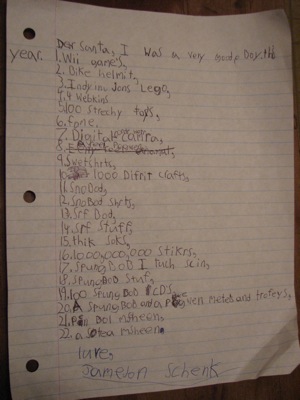 Dear Santa, I was a very good Boy this
year.
1. Wii games,
2. Bike helmit,
3. Indyinu Jons Lego,
4. 4 Webkins
5. 100 strechy toys,
6. fone,
7. Digital camra,
9. Swetshrts,
10. 1000 Difrit crafts,
11. Sno Bod,
12. Sno Bod shrts,
13. Srf Bod,
14. Srf Stuff,
15. thik Soks,
16. 1,000,000,000 Stikrs,
17. Spung BoB I tuch Scin,
18. Spung BoB Stuf,
19. 100 Spung BoB CD'S
20. A Spung BoB and a Pengwen meteds and trofeys,
21. Pin Bol msheen,
22. a Soda msheen
love,
Jameson Schenk